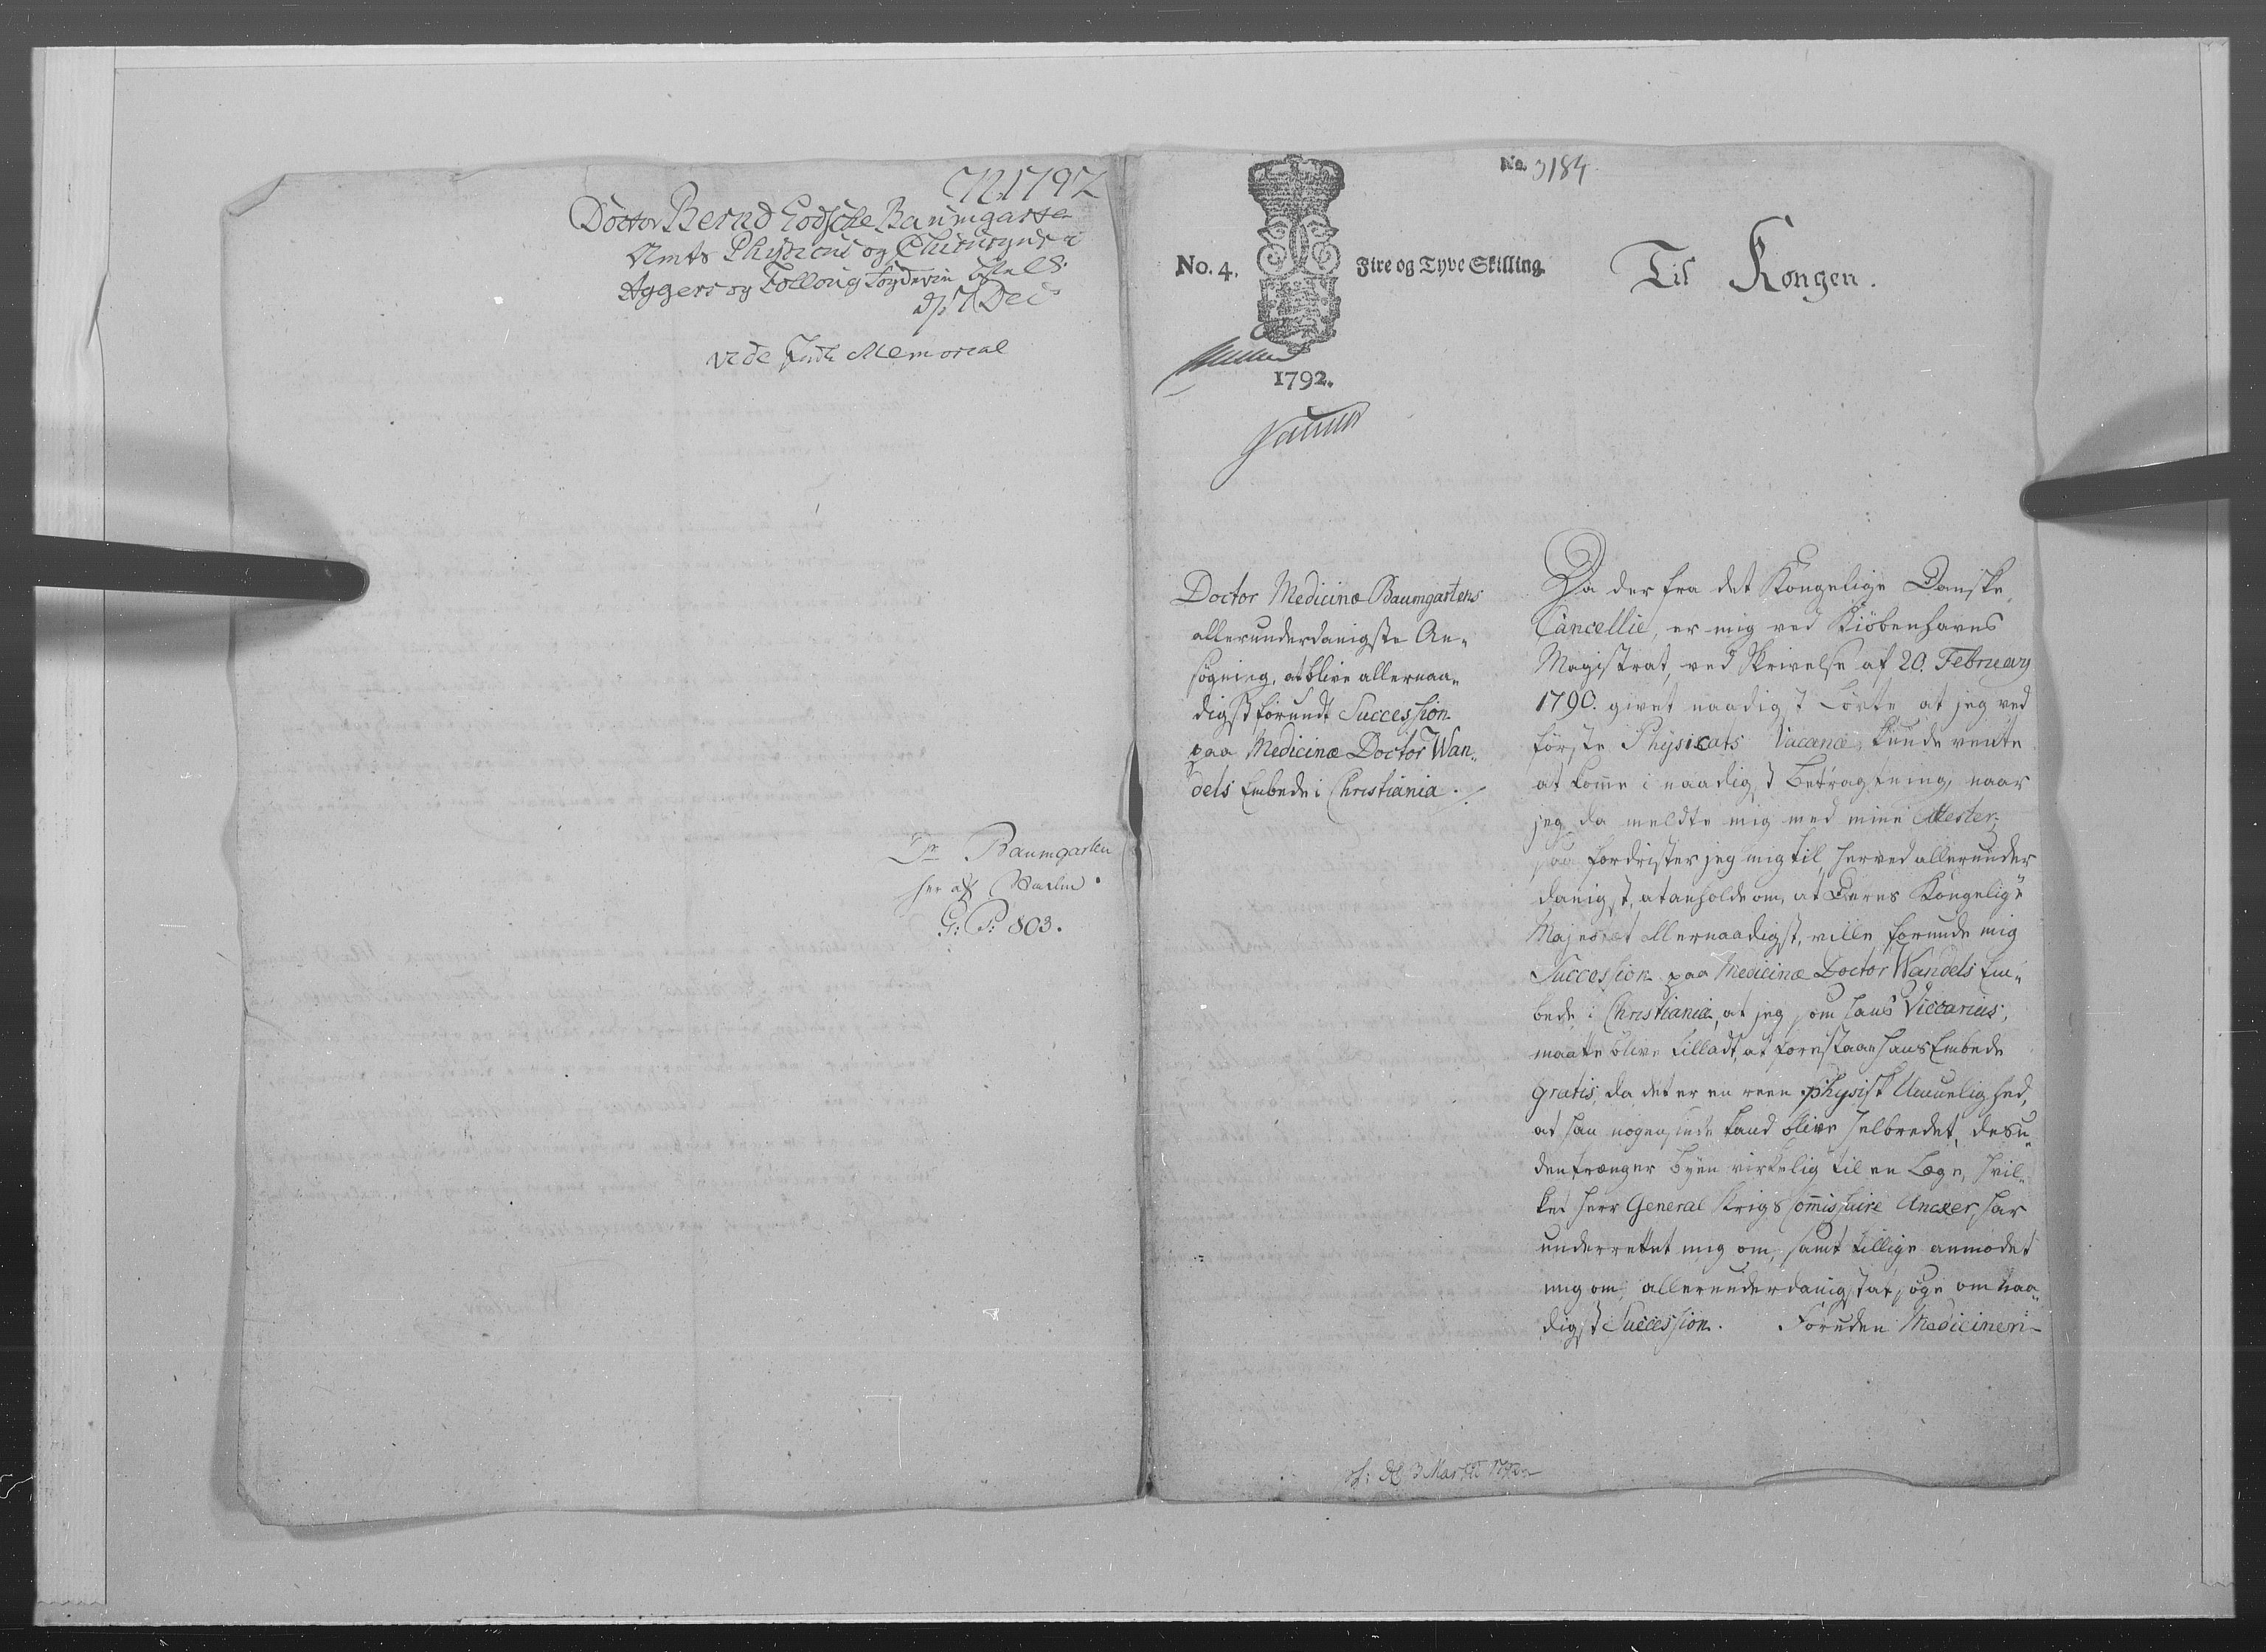 N. 1792
Doctor Bernd Godsche Baumgarte
Amts Physicus og Chirurgus i
Aggers og Folloug Fogderie
d. 7 Dec
vide Memorial
Dr Baumgarten
her af Staden
G: P: 803.
No. 3184
No. 4. Fire og Tyve Skilling.
1792.
Til Kongen.
Doctor Medicinæ Baumgartens
allerunderdanigste An„
søgning, at blive allernaa„
digst forundt Succession
paa Medicinæ Doctor Wan„
dels Embede i Christiania ./.
Da der fra det Kongelige Danske
Cancellie, er mig ved Kiöbenhavns
Magistrat, ved Skrivelse af 20. February
1790. givet naadigst Lövte at jeg ved
første Physicats Vacance, kunde vente
at kom̅e i naadigst Betragtning, naar
jeg da meldte mig med mine Attester;
saa fordrister jeg mig til, herved allerunder
danigst, at anholde om, at Deres Kongelige
Majestæt allernaadigst, ville forunde mig
Succession paa Medicinæ Doctor Wandels Em„
bede i Christiania, at jeg som hans Viccarius,
maatte blive tilladt, at forestaae hans Embede
gratis, da det er en reen physisk Umuelighed,
at han nogensinde kand blive helbredet, desu„
den trænger Byen virkelig til en Læge, hvil„
ket Herr General Krigs Com̅issaire Ancker, har
underrettet mig om, samt tillige anmodet
mig om, allerunderdanigst at søge om naa„
digst Succession. Foruden Medicinen
d: 3 Martii 1792